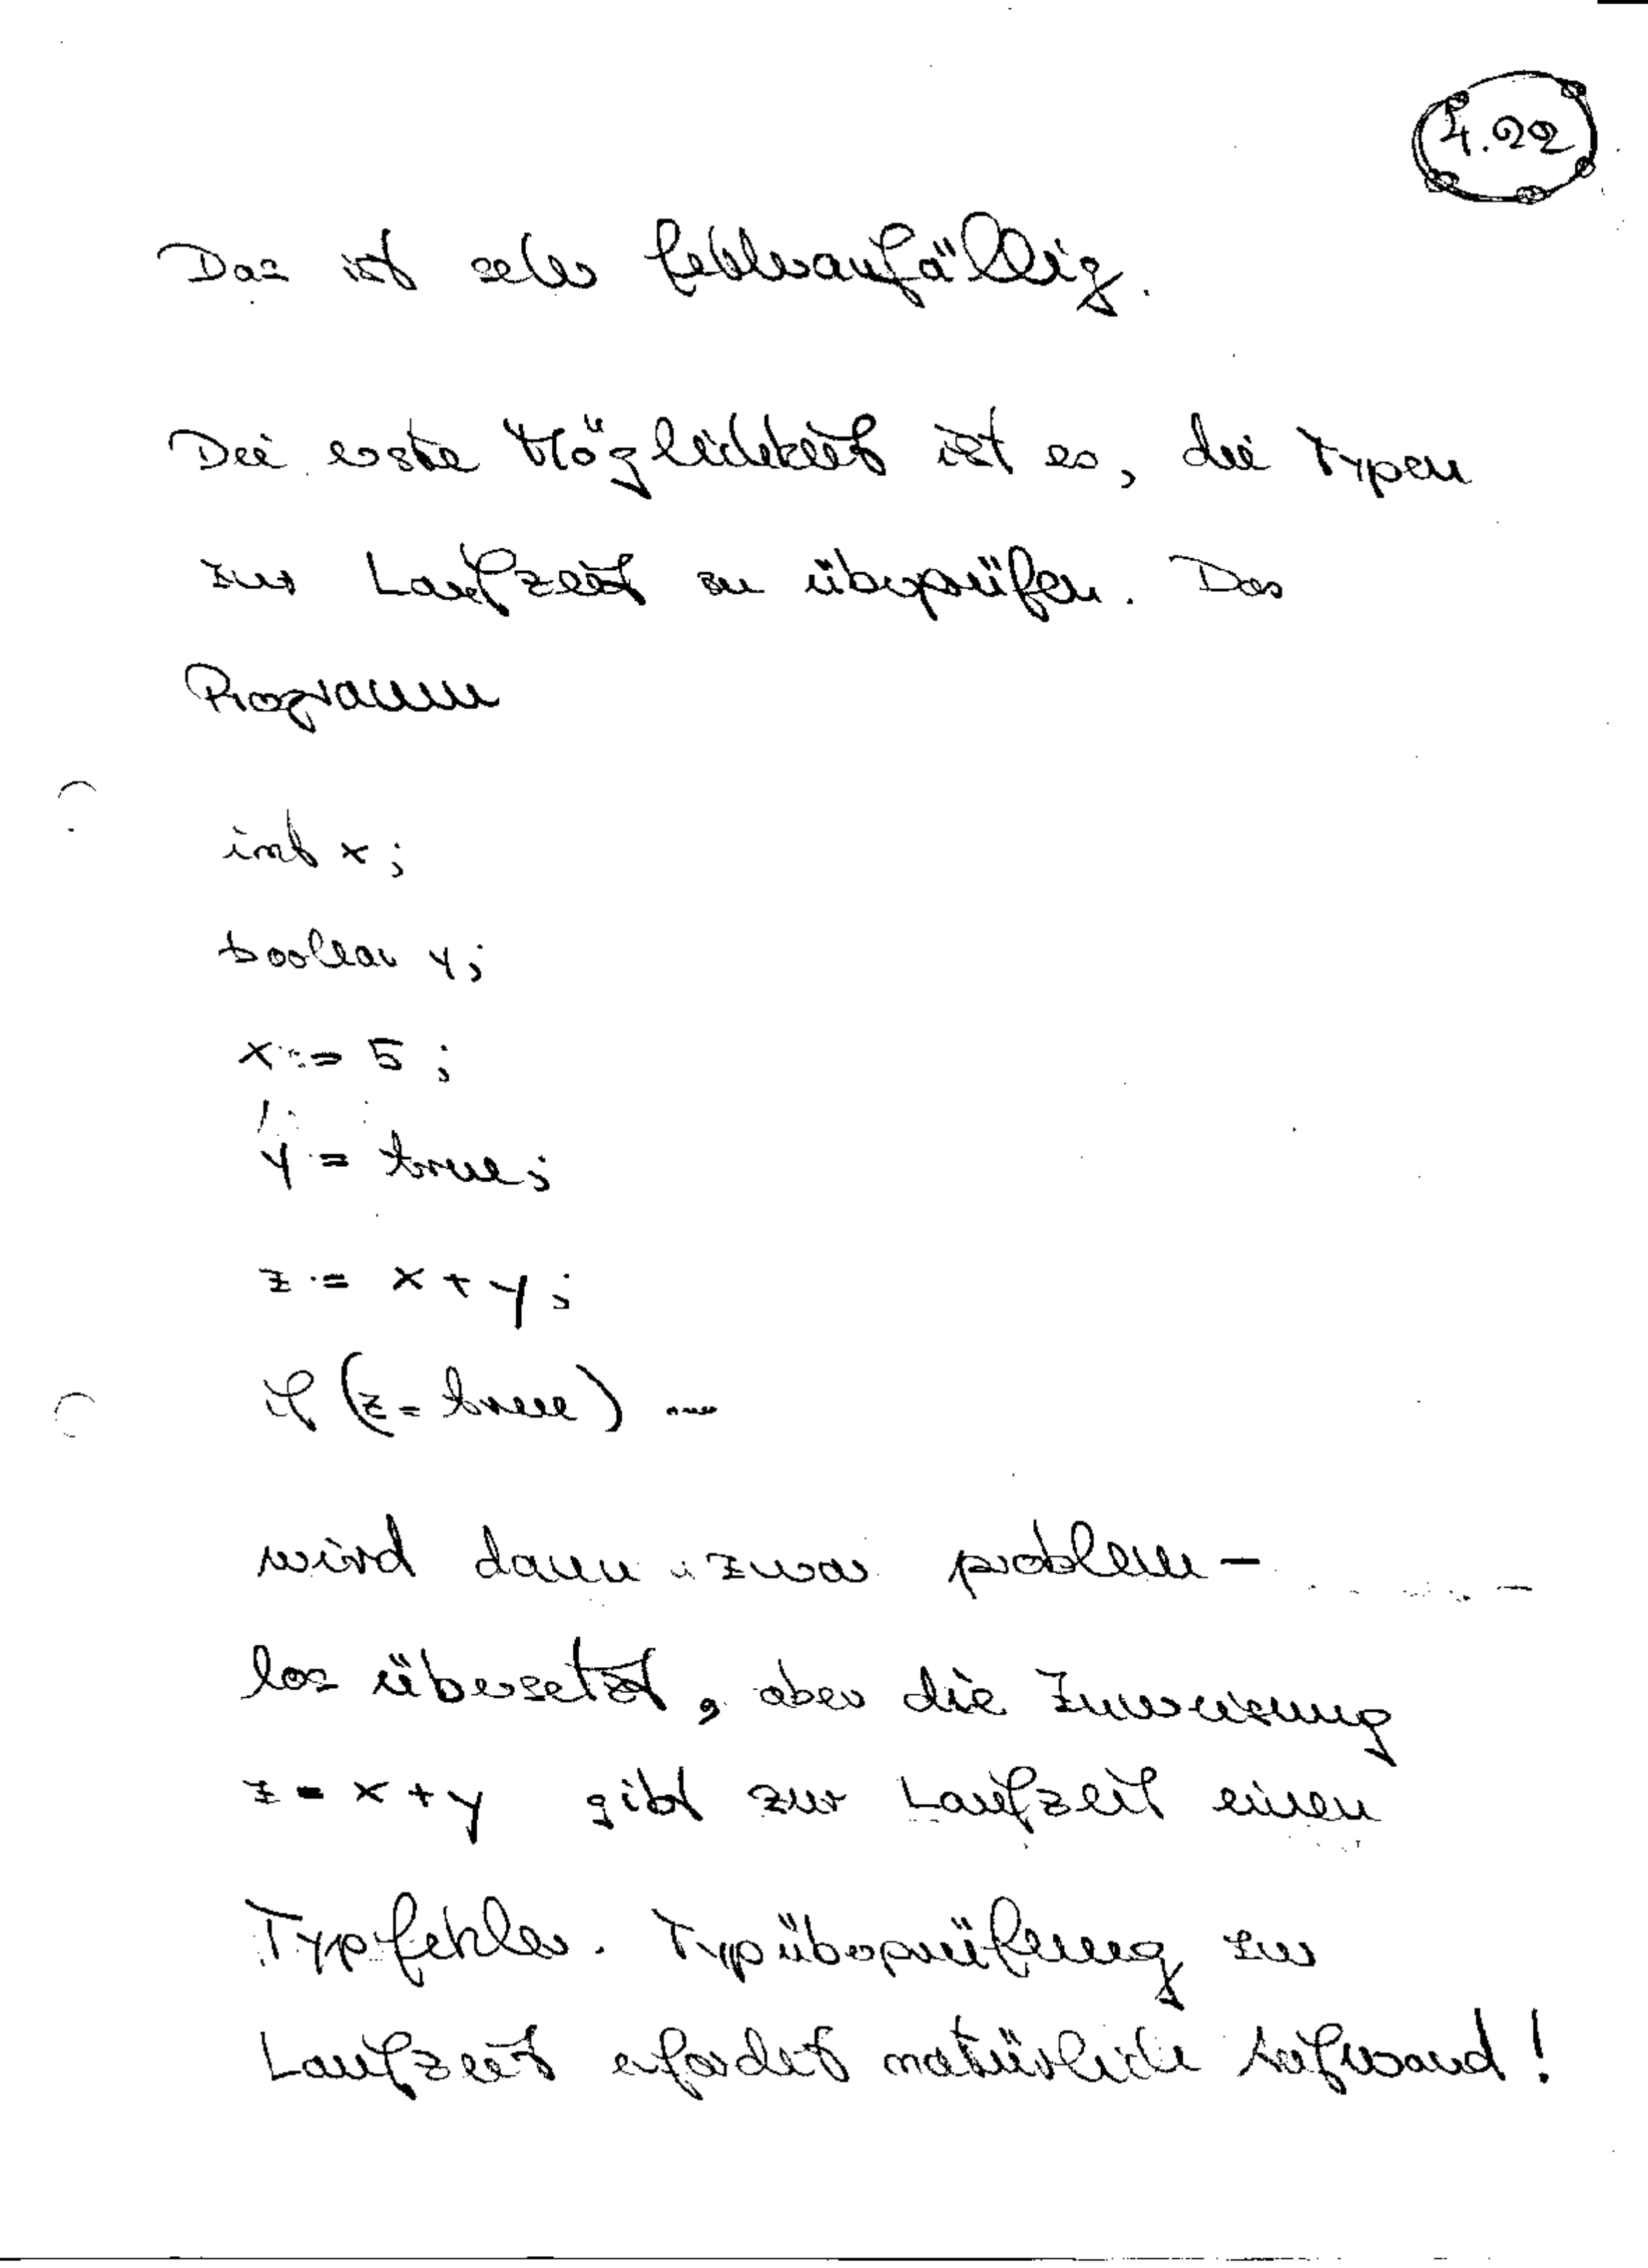 4.22
Das ist sehr fehleranfällig.
Die erste Möglichkeit ist es, die Typen
zur Laufzeit zu überprüfen. Das
Programm
int x;
boolean y;
x := 5;
y = true;
z := x + y;
if (z = true) ...
wird dann zwar problem-
los übersetzt, aber die Zuweisung
z = x + y gibt zur Laufzeit einen
Typfehler. Typüberprüfung zur
Laufzeit erfordert natürlich Aufwand!